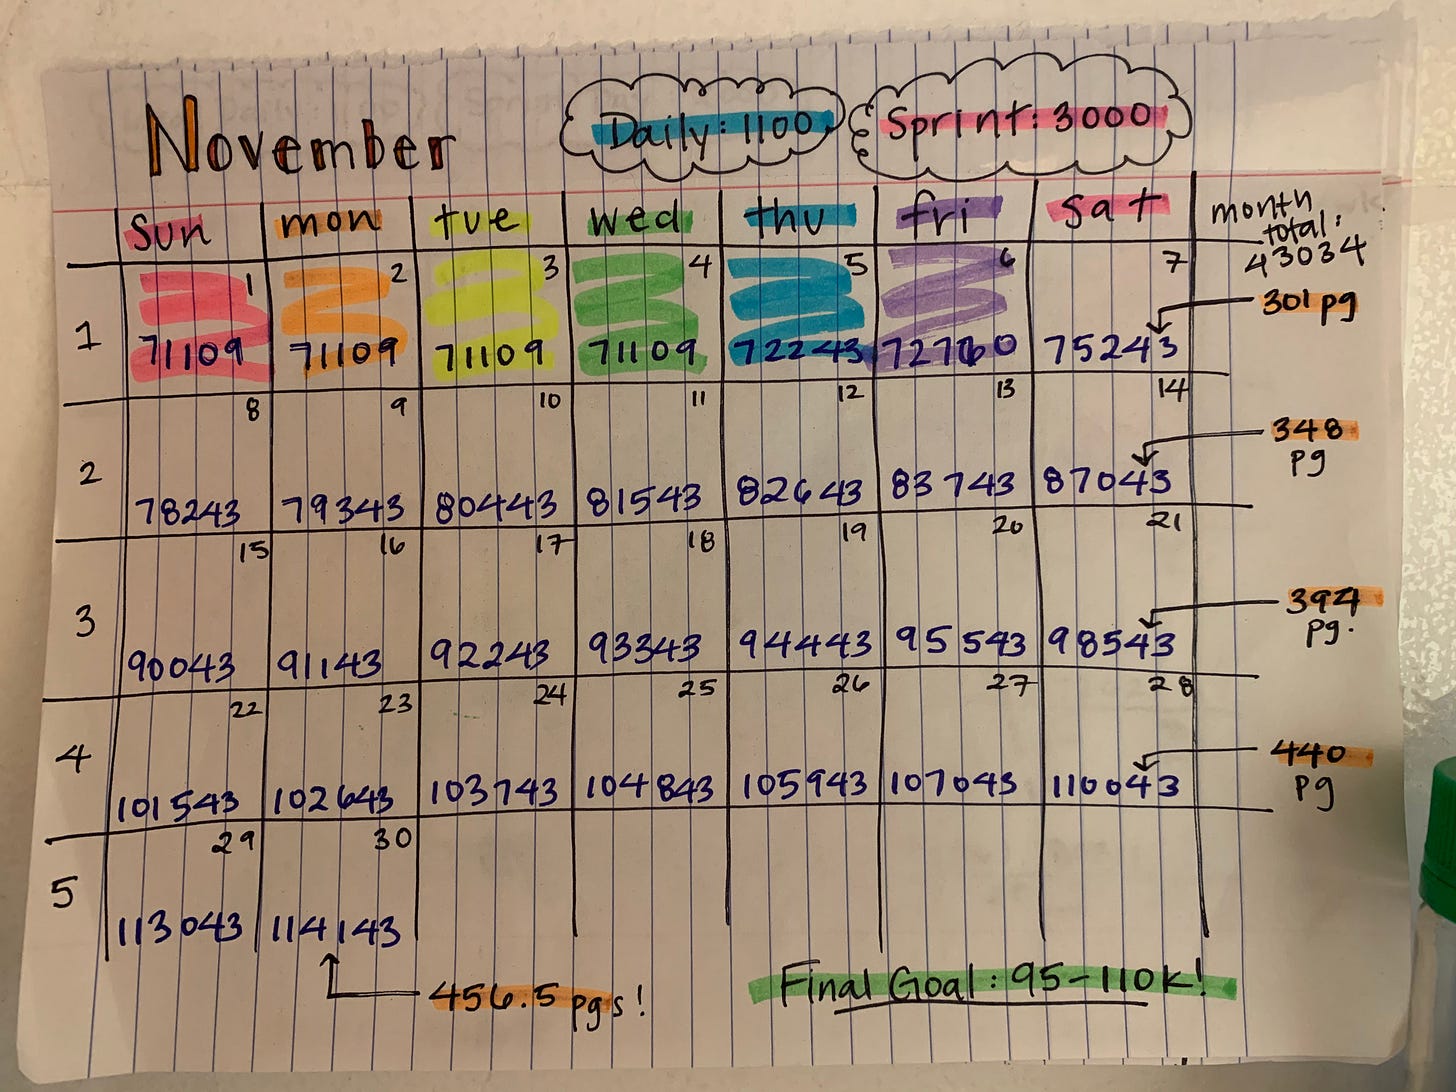 November
Daily: 1100
Sprint: 3000
sun mon tue wed thu fri sat
month
total:
43034
1 2 3 4 5 6 7
301 pg
1 71109 71109 71109 71109 72243 72760 75243
8 9 10 11 12 13 14
348
pg
2 78243 79343 80443 81543 82643 83743 87043
15 16 17 18 19 20 21
394
pg.
3 90043 91143 92243 93343 94443 95543 98543
22 23 24 25 26 27 28
440
pg
4 101543 102643 103743 104843 105943 107043 110043
29 30
5 113043 114143
456.5 pgs!
Final Goal: 95-110K!